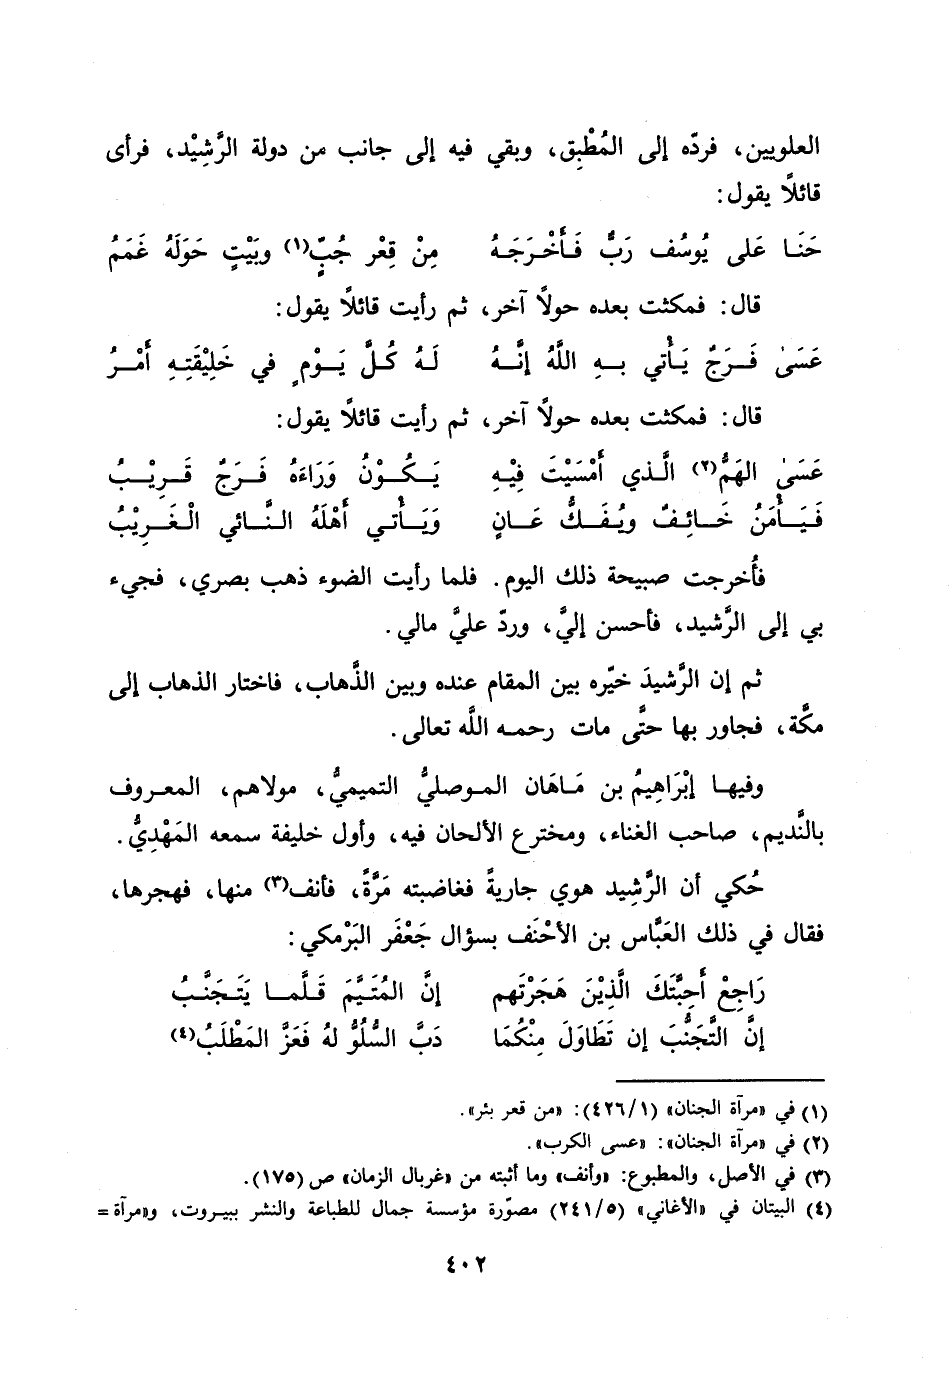 العلويين، فردّه إلى المُطْبِق، وبقي فيه إلى جانب من دولة الرَّشِيْد، فرأى
قائلًا يقول:
حَنَا عَلى يُوسُف رَبٌّ فَأَخْرَجَهُ مِنْ قِعْر جُبٍّ(١) وبَيْتٍ حَوْلَهُ غَمَمُ
قال: فمكثت بعده حولًا آخر، ثم رأيت قائلًا يقول:
عَسَىٰ فَرَجٌ يَأتي بِهِ اللَّهُ إنَّهُ لَهُ كُلَّ يَوْمٍ في خَلِيْقَتِهِ أَمْرُ
قال: فمكثت بعده حولًا آخر، ثم رأيت قائلًا يقول:
عَسَىٰ الهَمُّ(٢) الَّذي أَمْسَيْتَ فِيْهِ يَكُوْنُ وَرَاءَهُ فَرَجٌ قَرِيْبُ
فَيَأْمَنُ خَائِفٌ ويُفَكُّ عَانٍ وَيَأْتي أَهْلَهُ النَّائي الْغَرِيْبُ
فأُخرجت صبيحة ذلك اليوم. فلما رأيت الضوء ذهب بصري، فجيء
بي إلى الرَّشيد، فأحسن إليَّ، وردّ عليَّ مالي.
ثم إن الرَّشيدَ خيّره بين المقام عنده وبين الذَّهاب، فاختار الذهاب إلى
مكَّة، فجاور بها حتَّى مات رحمه اللَّه تعالى.
وفيها إبْرَاهِيمُ بن مَاهَان الموصليُّ التميميُّ، مولاهم، المعروف
بالنَّديم، صاحب الغناء، ومخترع الألحان فيه، وأول خليفة سمعه المَهْدِيُّ.
حُكي أن الرَّشِيد هوي جاريةً فغاضبته مَرَّةً، فأنف(٣) منها، فهجرها،
فقال في ذلك العَبَّاس بن الأحْنَف بسؤال جَعْفَر البَرْمكي:
رَاجِعْ أَحِبَّتَكَ الَّذِيْنَ هَجَرْتَهم إنَّ المُتَيَّمَ قَلَّما يَتَجَنَّبُ
إنَّ التَّجَنُّبَ إن تَطَاوَلَ مِنْكُمَا دَبَّ السُّلُوُّ لهُ فَعَزَّ المَطْلَبُ(٤)
(١) في «مرآة الجنان» (٤٢٦/١): «من قعر بئر».
(٢) في «مرآة الجنان»: «عسى الكرب».
(٣) في الأصل، والمطبوع: «وأنف» وما أثبته من «غربال الزمان» ص (١٧٥).
(٤) البيتان في «الأغاني» (٢٤١/٥) مصوّرة مؤسسة جمال للطباعة والنشر ببيروت، و«مرآة =
٤٠٢